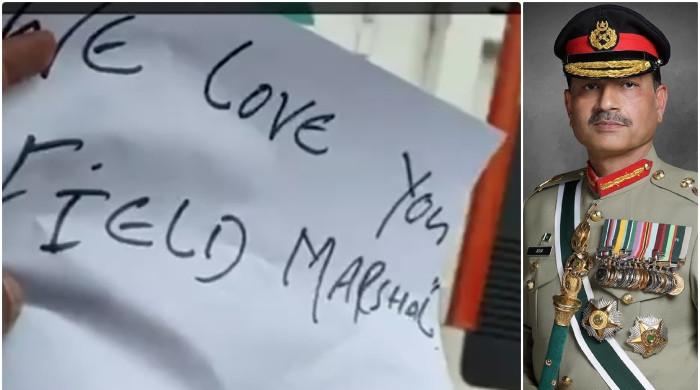 WE LOVE You
FIELD MARSHal